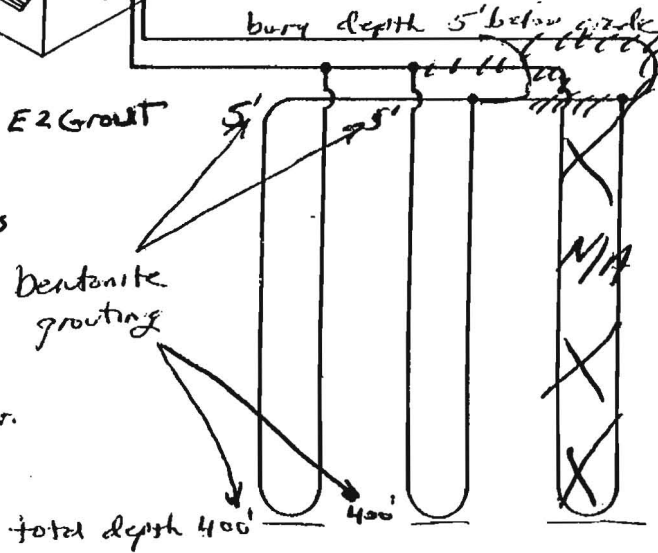 bury depth 5' below grade
EZ Grout
5'
5'
s
N/A
bentonite
grouting
r.
400'
total depth 400'